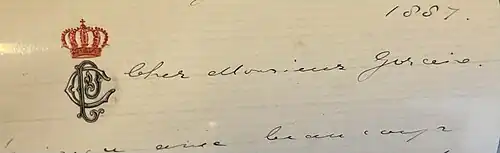 1887.
Cher Monsieur
avec beaucoup